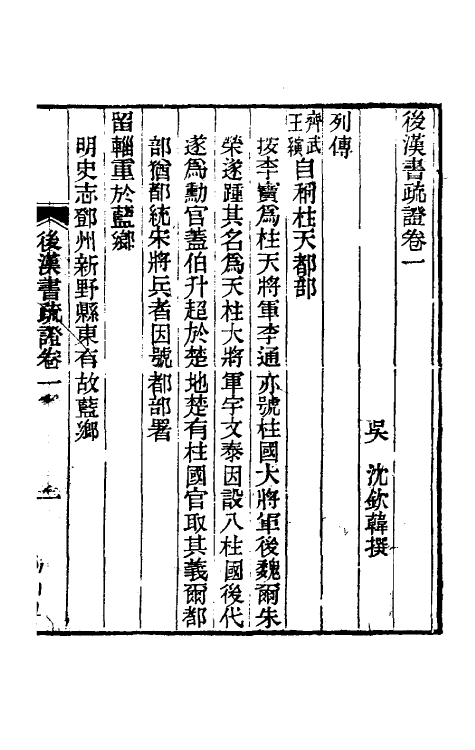 後漢書疏證卷一
吳　沈欽韓撰
列傳
齊武王縯自稱柱天都部
按李寶爲柱天將軍李通亦號柱國大將軍後魏爾朱
榮遂踵其名爲天柱大將軍宇文泰因設八柱國後代
遂爲勳官蓋伯升超於楚地楚有柱國官取其義爾都
部猶都統宋將兵者因號都部署
留輜重於藍鄉
明史志鄧州新野縣東有故藍鄉
後漢書疏證卷一
一